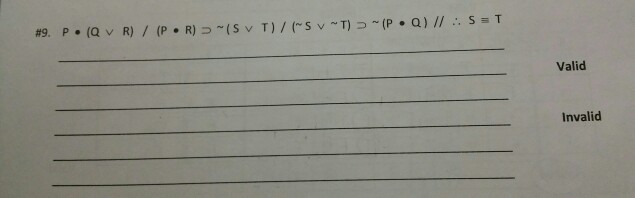 #9. P • (Q ∨ R) / (P • R) ⊃ ~(S ∨ T) / (~S ∨ ~T) ⊃ ~(P • Q) // ∴ S ≡ T
Valid
Invalid